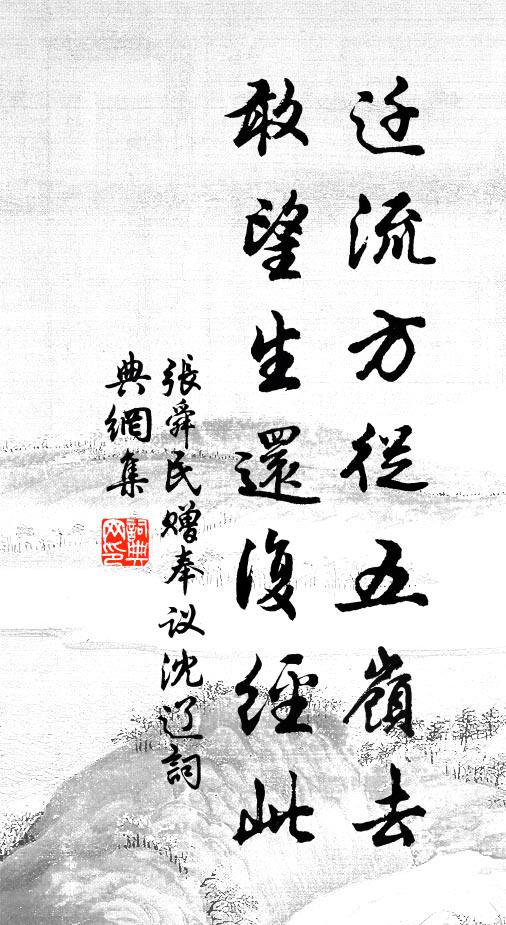 迁流方從五嶺去
敢望生還復經此
張舜民赠奉议沈辽詞
典網集
詞典网印